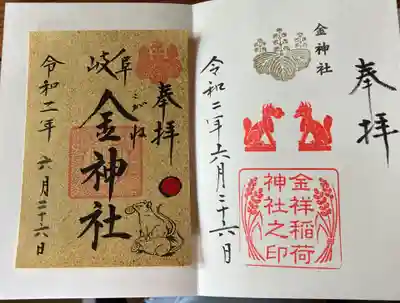 奉拝
金神社
金祥稲荷
神社之印
令和二年六月二十六日
奉拝
岐阜
こがね
金神社
令和二年 六月二十六日